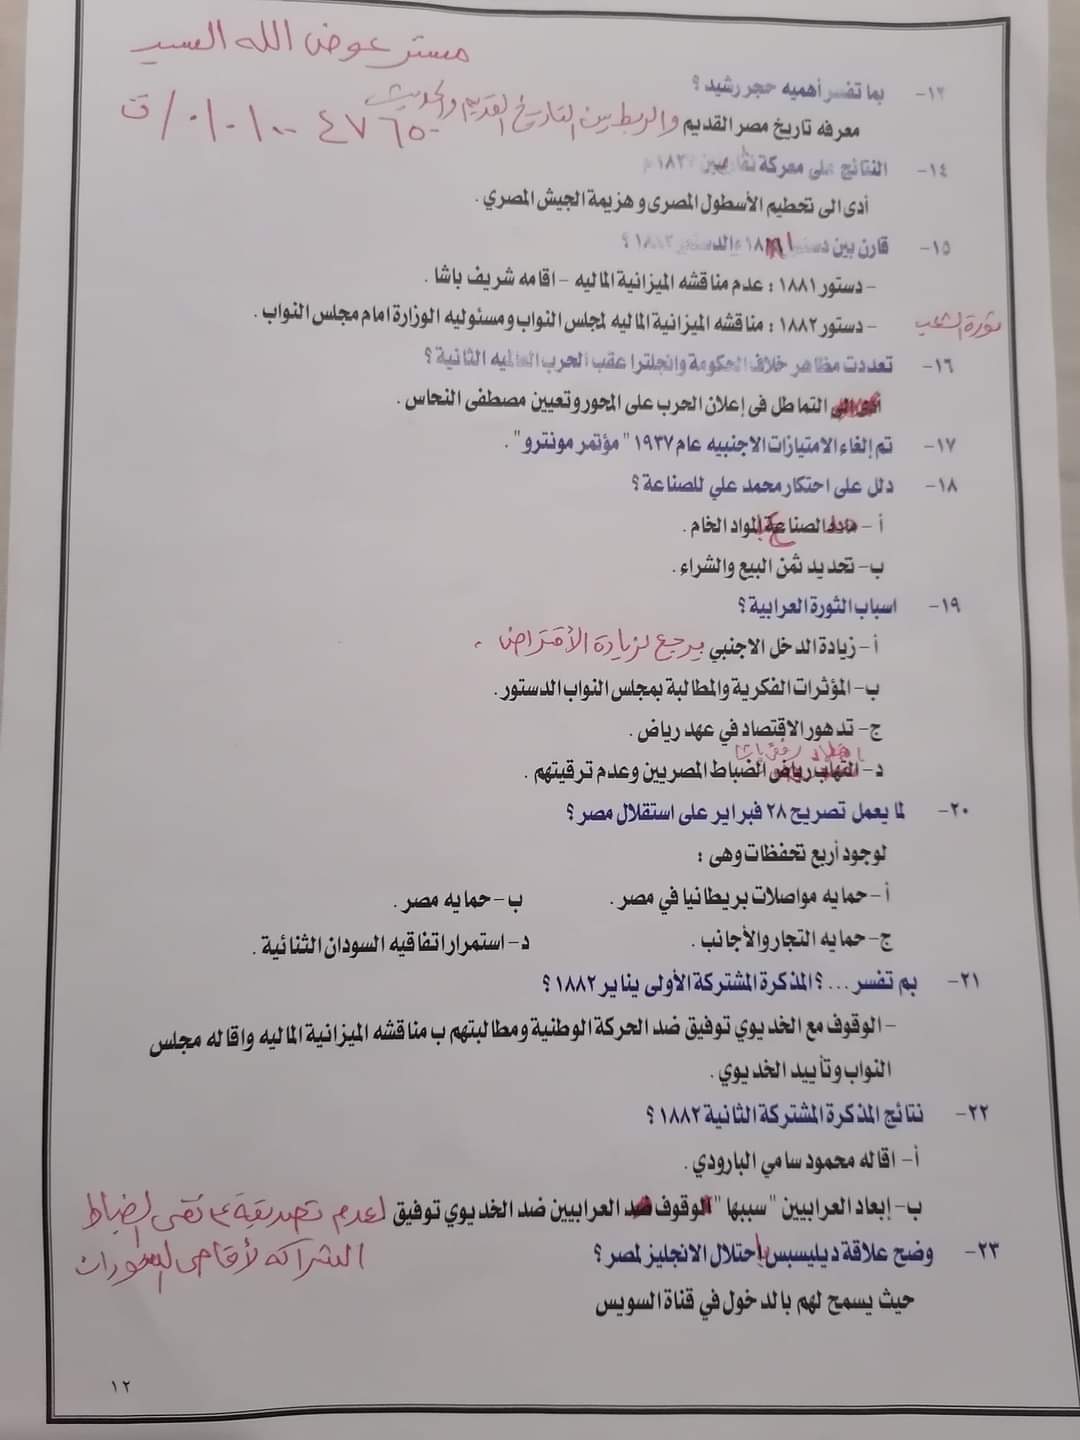 مستر عوض الله السيد
١٣- بما تفسر أهميه حجر رشيد ؟
معرفه تاريخ مصر القديم والربط بين التاريخ القديم والحديث
ت / ٠١٠١٠٠٤٧٦٥٠
١٤- النتائج على معركة نفارين ١٨٢٧م
أدى الى تحطيم الأسطول المصرى و هزيمة الجيش المصري .
١٥- قارن بين دستور ١٨٨١ والدستور ١٨٨٢ ؟
- دستور ١٨٨١ : عدم مناقشه الميزانية الماليه - اقامه شريف باشا .
- دستور ١٨٨٢ : مناقشه الميزانية الماليه لمجلس النواب ومسئوليه الوزارة امام مجلس النواب .
ثورة الشعب
١٦- تعددت مظاهر خلاف الحكومة وانجلترا عقب الحرب العالميه الثانية ؟
التماطل فى إعلان الحرب على المحور وتعيين مصطفى النحاس .
١٧- تم إلغاء الامتيازات الاجنبيه عام ١٩٣٧ " مؤتمر مونترو " .
١٨- دلل على احتكار محمد علي للصناعة ؟
أ - الصناع المواد الخام .
ب- تحديد ثمن البيع والشراء .
١٩- اسباب الثورة العرابية ؟
أ- زيادة الدخل الاجنبي يرجع لزيادة الأقتراض .
ب- المؤثرات الفكرية والمطالبة بمجلس النواب الدستور .
ج- تدهور الاقتصاد في عهد رياض .
د- الضباط المصريين وعدم ترقيتهم .
٢٠- لما يعمل تصريح ٢٨ فبراير على استقلال مصر ؟
لوجود أربع تحفظات وهى :
أ- حمايه مواصلات بريطانيا في مصر . ب- حمايه مصر .
ج- حمايه التجار والأجانب . د- استمرار اتفاقيه السودان الثنائية .
٢١- بم تفسر ... ؟ المذكرة المشتركة الأولى يناير ١٨٨٢ ؟
- الوقوف مع الخديوي توفيق ضد الحركة الوطنية ومطالبتهم ب مناقشه الميزانية الماليه واقاله مجلس
النواب وتأييد الخديوي .
٢٢- نتائج المذكرة المشتركة الثانية ١٨٨٢ ؟
أ- اقاله محمود سامي البارودي .
ب- إبعاد العرابيين " سببها " الوقوف العرابيين ضد الخديوي توفيق لعدم تصديقه نفى الضباط
الشراكه لأقاصى السودان
٢٣- وضح علاقة ديليسبس باحتلال الانجليز لمصر ؟
حيث يسمح لهم بالدخول في قناة السويس
١٢